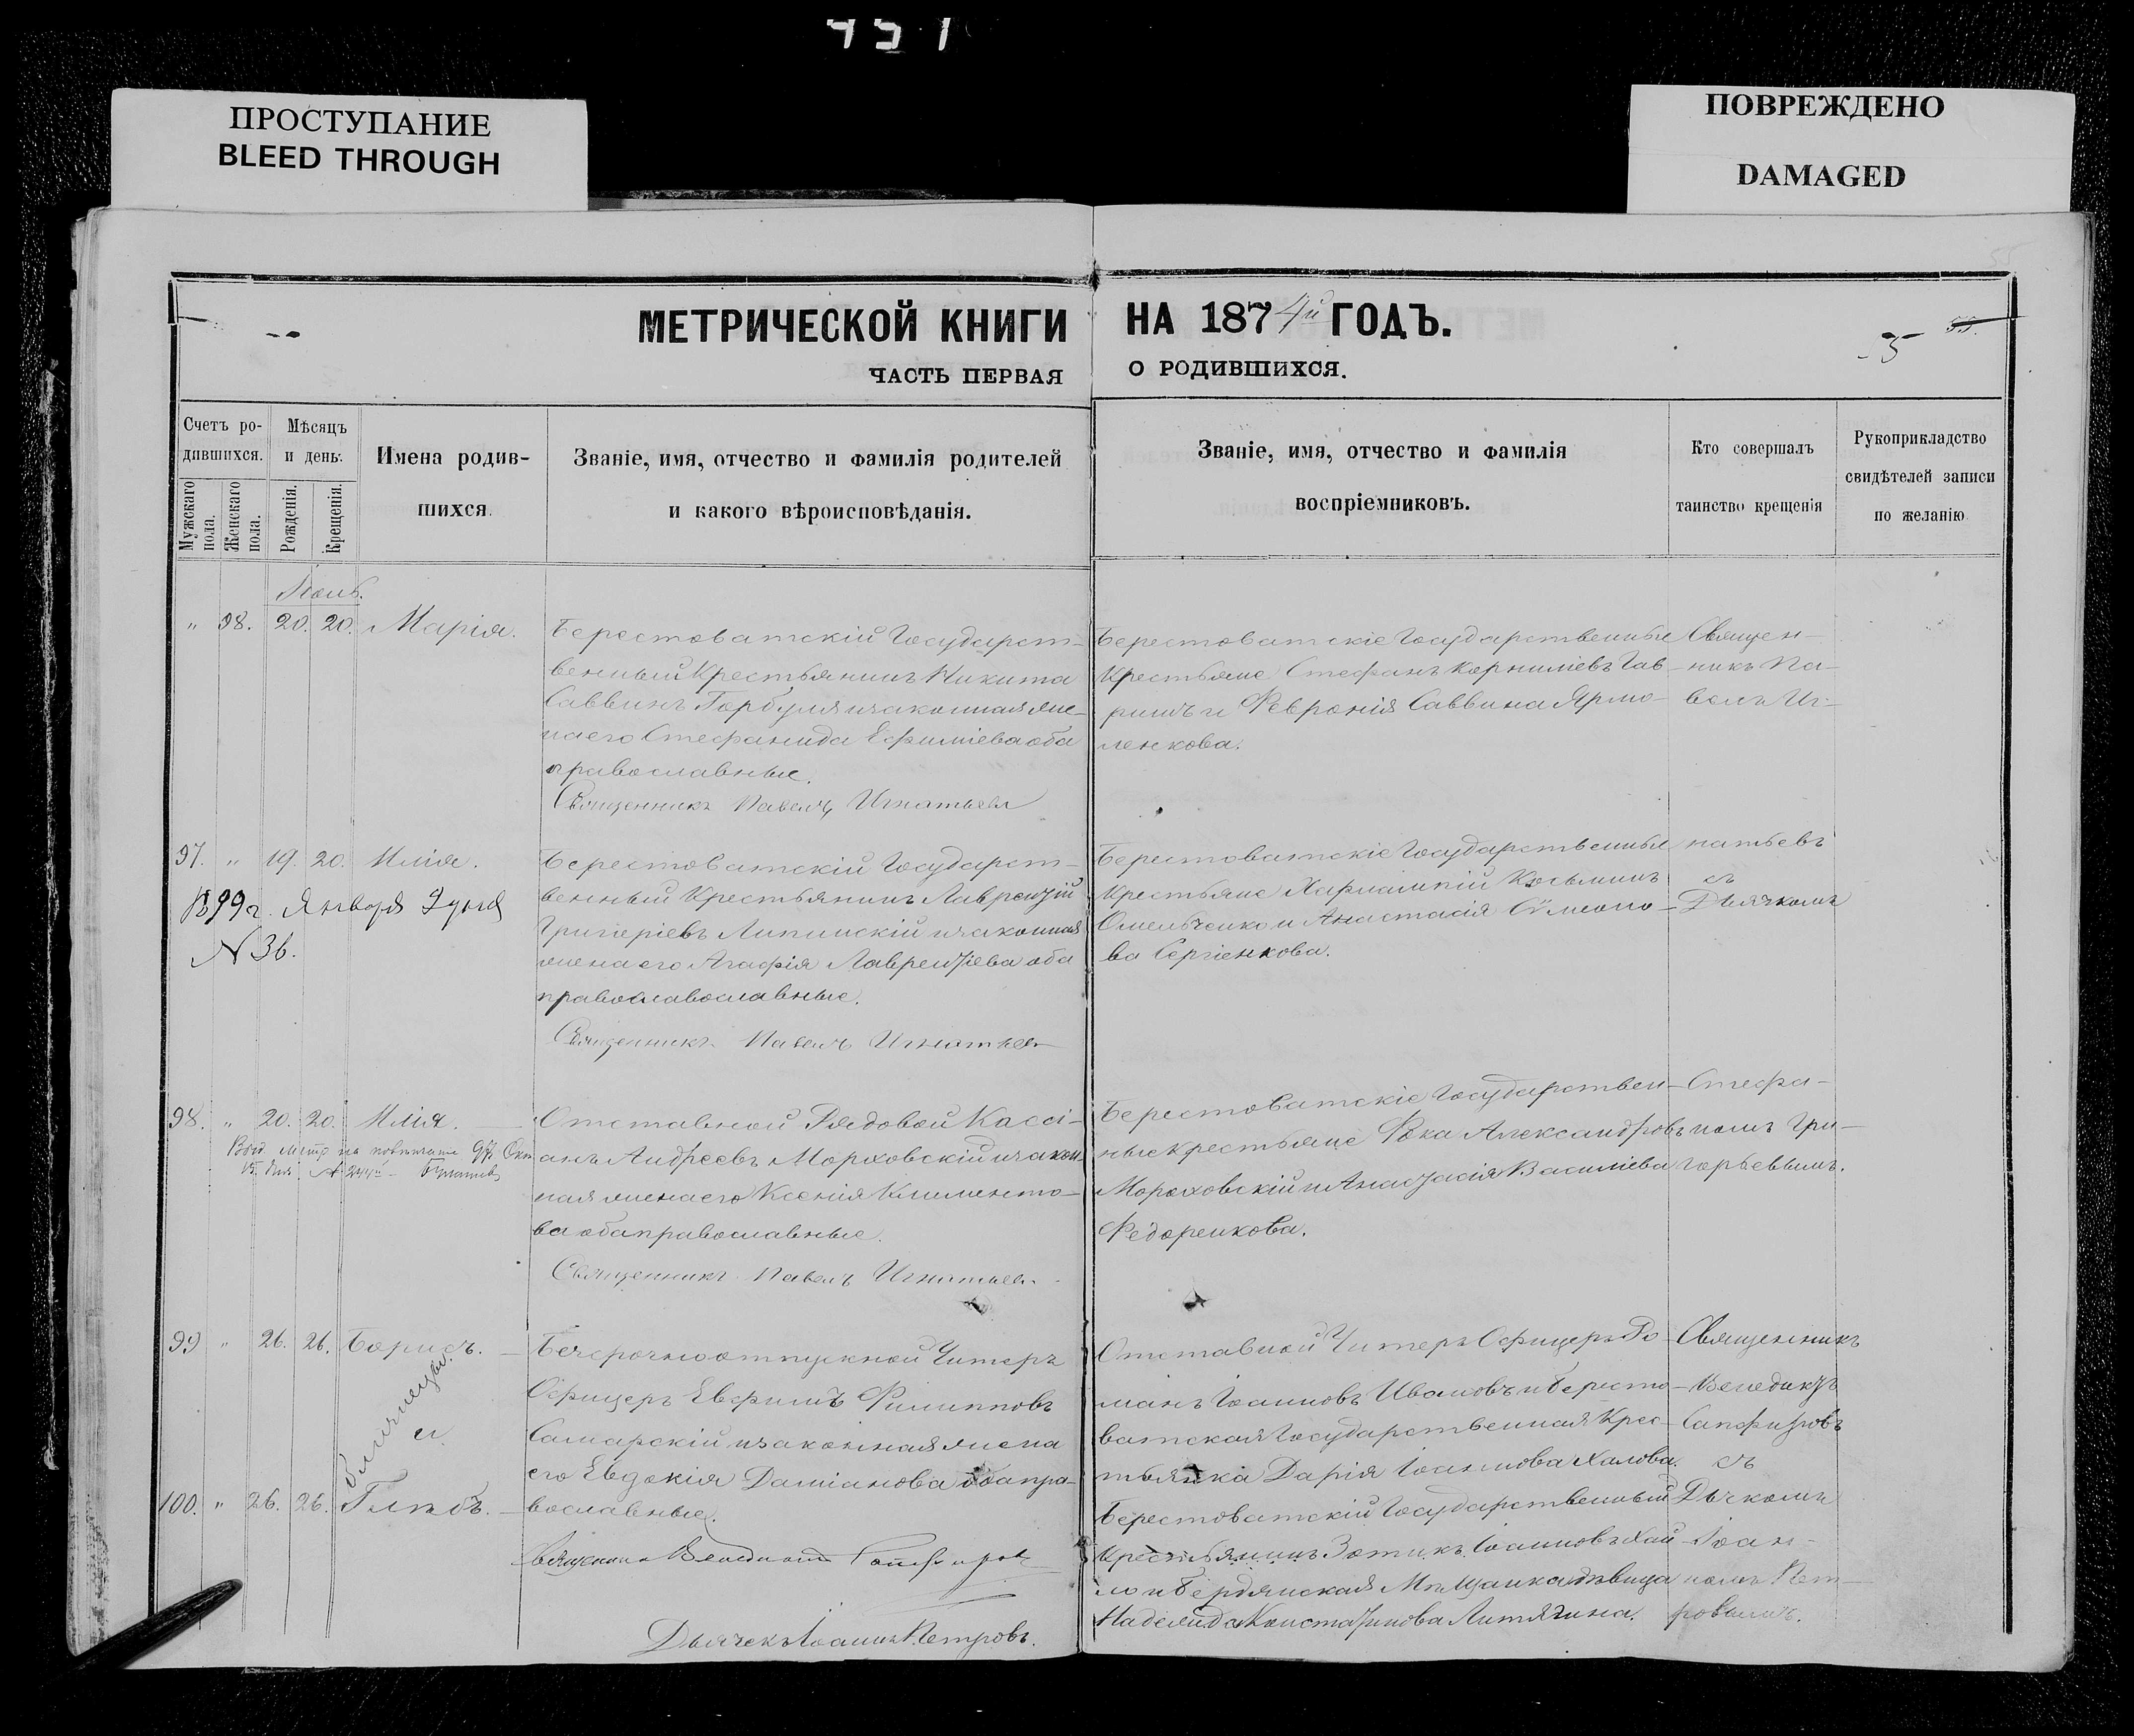 451
ПРОСТУПАНИЕ
BLEED THROUGH
ПОВРЕЖДЕНО
DAMAGED
МЕТРИЧЕСКОЙ КНИГИ НА 1874й ГОДЪ.
ЧАСТЬ ПЕРВАЯ О РОДИВШИХСЯ.
Счетъ ро-
дившихся.
Мужскаго пола.
Женскаго пола.
Мѣсяцъ
и день.
Рожденія.
Крещенія.
Имена родив-
шихся.
Званіе, имя, отчество и фамилія родителей
и какого вѣроисповѣданія.
Званіе, имя, отчество и фамилія
воспріемниковъ.
Кто совершалъ
таинство крещенія
Рукоприкладство
свидѣтелей записи
по желанію
" 98. 20. 20. Марія.
Берестоватскій Государст-
венный Крестьянинъ Никита
Саввинъ Горбуля и законная же-
на его Стефанида Ефиміева оба
православные.
Священникъ Павелъ Игнатьевъ
Берестоватскіе Государственные
Крестьяне Стефанъ Корниліевъ Гав-
ришъ и Феврония Саввина Ярмо-
ленкова.
Священ-
никъ Па-
велъ Иг-
97. " 19. 20. Илія.
899 г. Января 2 дня
N 36.
Берестоватскій Государст-
венный Крестьянинъ Лаврентій
Григоріевъ Липинскій и законная
жена его Агафія Лаврентіева оба
православославные.
Священникъ Павелъ Игнатьевъ
Берестоватскіе Государственные
Крестьяне Харлампій Косьминъ
Омельченко и Анастасія Сѵмеоно-
ва Сергіенкова.
натьевъ
съ
Дьячкомъ
98. " 20. 20. Илія.
Отставной Рядовой Кассі-
анъ Андреевъ Мороховскій и закон-
ная жена его Ксенія Климento-
ва оба православные.
Священникъ Павелъ Игнатьевъ
Берестоватскіе Государствен-
ные Крестьяне Фока Александровъ
Мороховскій и Анастасія Василіева
Федоренкова.
Стефа-
номъ Гри-
горьевымъ.
99 " 26. 26. Борисъ.
близнецы
и
100. " 26. 26. Глѣбъ.
Безсрочноотпускной Унтеръ
Офицеръ Евфимъ Филипповъ
Самарскій и законная жена
его Евдокія Даміанова оба пра-
вославные.
Священникъ Венедиктъ Сапфировъ
Дьячекъ Іоаннъ Петровъ.
Отставной Унтеръ Офицеръ Ро-
манъ Іоанновъ Ивановъ и Бересто-
ватская Государственная Крес-
тьянка Дарія Іоаннова Халова.
Берестоватскій Государственный
Крестьянинъ Зотикъ Іоанновъ Хай-
ло и Бердянская Мѣщанка дѣвица
Надежда Константинова Литягина.
Священникъ
Венедиктъ
Сапфировъ
съ
Дьчкомъ
Іоан-
номъ Пет-
ровымъ.